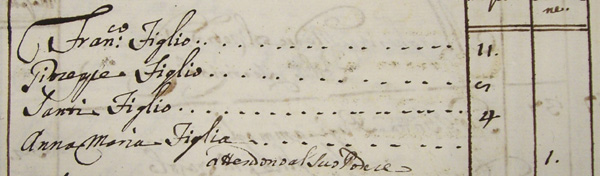 ne.
Fran:co Figlio . . . . . . . . . . . . . . . . . . . . 11.
Giuseppe Figlio . . . . . . . . . . . . . . . . . . . .
Santi Figlio . . . . . . . . . . . . . . . . . . . . 4
Anna Maria Figlia 1.
attendono al suo Podere